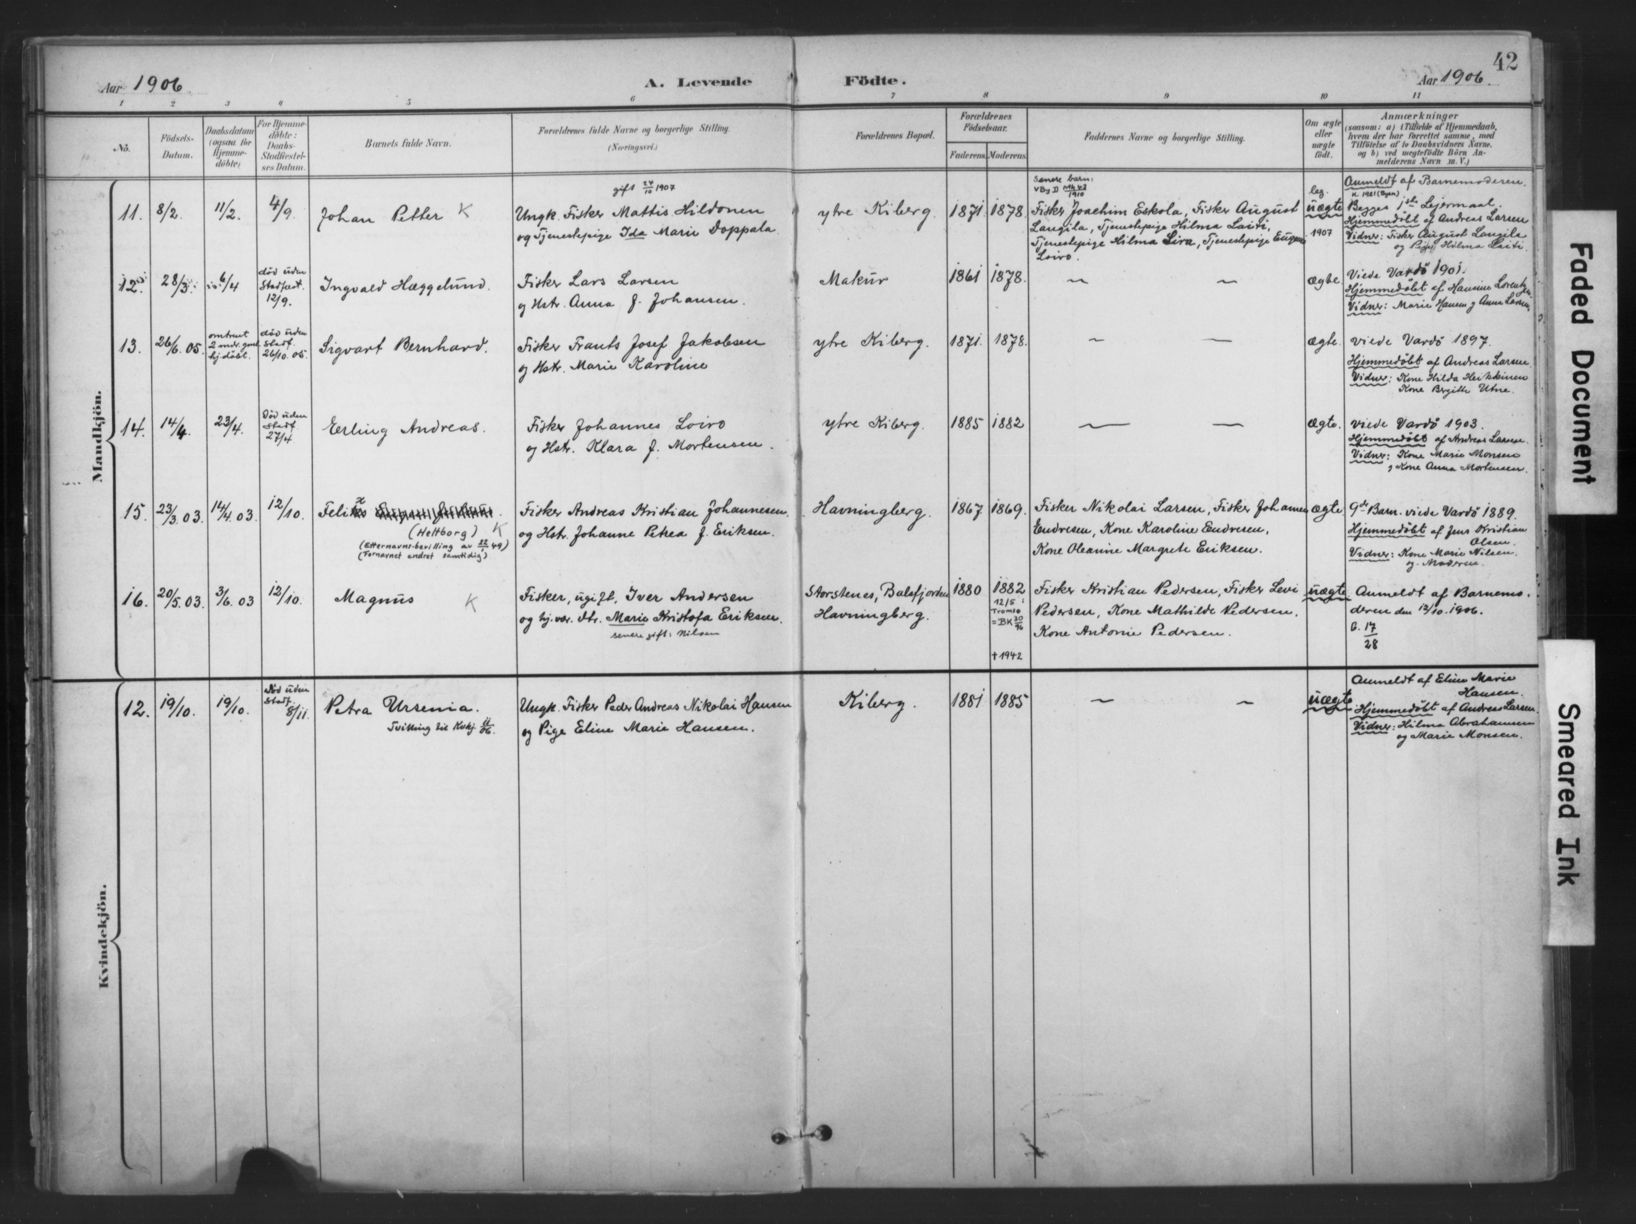 42
Aar 1906
A. Levende
Födte.
Aar 1906.
1 2 3 4 5 6 7 8 9 10 11
No.
Födsels-
Datum.
Daabsdatum
(ogsaa for
Hjemme-
döbte)
For Hjemme-
döbte:
Daabs-
Stadfæstel-
ses Datum.
Barnets fulde Navn.
Forældrenes fulde Navne og borgerlige Stilling.
(Næringsvei.)
Forældrenes Bopæl.
Forældrenes
Födselsaar.
Faderens.
Moderens.
Faddernes Navne og borgerlige Stilling.
Om ægte
eller
uægte
födt.
Anmærkninger
(saasom: a) i Tilfælde af Hjemmedaab,
hvem der har forrettet samme, med
Tilföielse af to Daabsvidners Navne,
og b) ved uægtefödte Börn An-
melderens Navn m. V.)
Mandkjön.
11.
8/2.
11/2.
4/9.
Johan Petter K
gift 24/10 1907
Ungk. Fisker Mattis Hildonen
og Tjenestepige Ida Marie Doppala
ytre Kiberg.
1871
1878.
Senere barn:
1910
Fisker Joachim Eskola, Fisker August
Langila, Tjenestepige Hilma Laiti,
Tjenestepige Hilma Lira, Tjenestepige
Loiro.
leg.
uægte
1907
Anmeldt af Barnemoderen.
Begges 1ste Lejermaal.
Hjemmedöbt af Andreas Larsen
Vidner: Fisker August Langila
og Pige Hilma Laiti.
12.
28/3.
6/4
död uden
Stadfæst.
12/9.
Ingvald Hæggelund.
Fisker Lars Larsen
og Hstr. Anna f. Johansen.
Makur
1861
1878.
— —
ægte.
Viede Vardö 1901.
Hjemmedöbt af Hansine Lorentzen
Vidner: Marie Hansen og Anna Larsen
13.
26/6. 05.
omtrent
2 mdr. gml.
hj.döbt.
död uden
Stadf.
26/10. 05.
Sigvart Bernhard.
Fisker Frants Josef Jakobsen
og Hstr. Marie Karoline
ytre Kiberg.
1871.
1878.
— —
ægte.
viede Vardö 1897.
Hjemmedöbt af Andreas Larsen
Vidner: Kone Hilda Heikkinen
Kone Birgitte Utne.
14.
14/4.
23/4.
död uden
Stadf.
27/4
Erling Andreas.
Fisker Johannes Loiro
og Hstr. Klara f. Mortensen.
ytre Kiberg.
1885
1882
— —
ægte.
viede Vardö 1903.
Hjemmedöbt af Andreas Larsen.
Vidner: Kone Marie Monsen
og Kone Anna Mortensen.
15.
23/3. 03.
14/4. 03
12/10.
Felix
(Heltborg) K
(Etternavns-bevilling av 22/1 49)
(Fornavnet endret samtidig)
Fisker Andreas Kristian Johannesen
og Hstr. Johanne Petrea f. Eriksen.
Havningberg.
1867
1869.
Fisker Nikolai Larsen, Fisker Johannes
Endresen, Kone Karoline Endresen,
Kone Oleanne Margrete Eriksen.
ægte
9de Barn. viede Vardö 1889.
Hjemmedöbt af Jens Kristian
Olsen.
Vidner: Kone Marie Nilsen.
og Moderen.
16.
20/5. 03
3/6. 03
12/10.
Magnus K
Fisker, ugift, Iver Andersen
og hj.vær. Dtr. Marie Kristofa Eriksen.
senere gift: Nilsen
Storstenes, Balsfjorden
Havningberg.
1880
1882
12/5 i
Tromsø
=BK 30/96
† 1942
Fisker Kristian Pedersen, Fisker Levi
Pedersen, Kone Mathilde Pedersen,
Kone Antonie Pedersen.
uægte
Anmeldt af Barnemo-
deren den 12/10. 1906.
B. 17/28
Kvindekjön.
12.
19/10.
19/10.
död uden
Stadf.
8/11.
Petra Ursenia.
Tvilling til Kvkj. 11/06.
Ungk. Fisker Peder Andreas Nikolai Hansen
og Pige Eline Marie Hansen.
Kiberg.
1881
1885
— —
uægte
Anmeldt af Eline Marie
Hansen.
Hjemmedöbt af Andreas Larsen.
Vidner: Hilma Abrahamsen
og Marie Monsen.
Faded Document
Smeared Ink